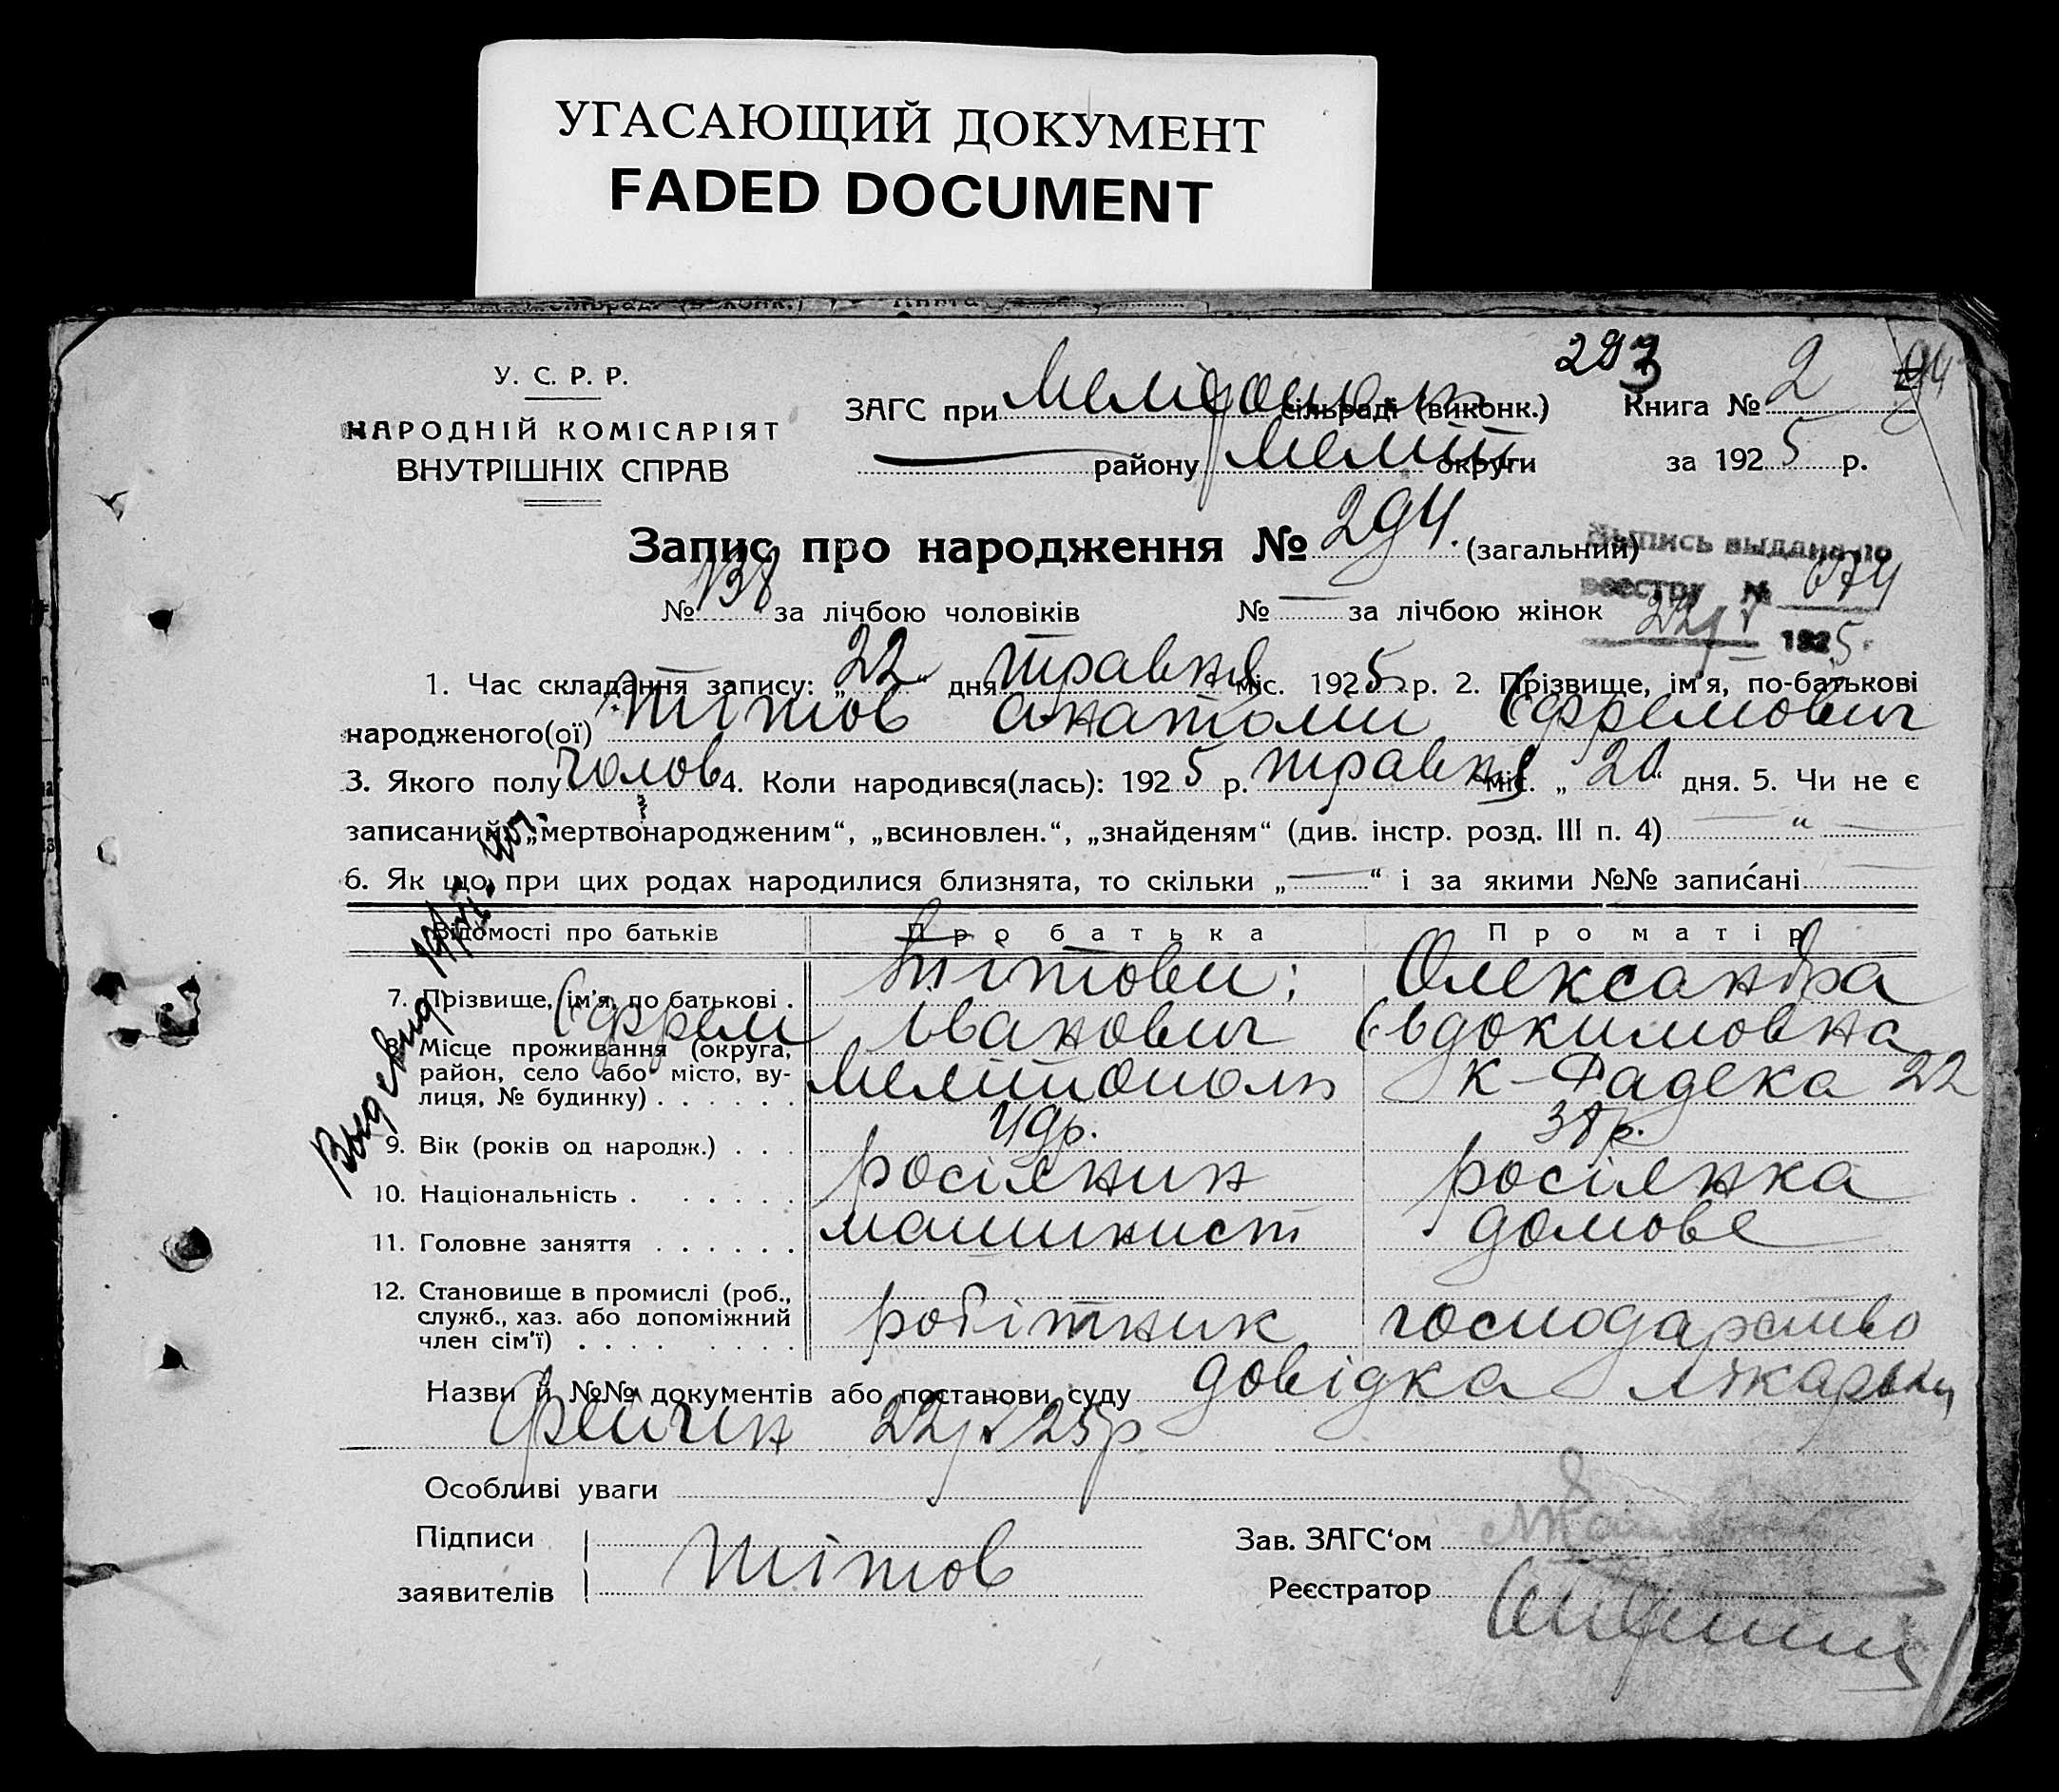 УГАСАЮЩИЙ ДОКУМЕНТ
FADED DOCUMENT
293
У. С. Р. Р.
НАРОДНІЙ КОМІСАРІЯТ
ВНУТРІШНІХ СПРАВ
ЗАГС при Мелітополь сільраді (виконк.) Книга № 2
району Меліт округи за 1925 р.
Запис про народження № 294. (загальний)
Выпись выдана по
реестру № 674
1925
№ 138 за лічбою чоловіків № — за лічбою жінок
1. Час складання запису: „22" дня травня міс. 1925 р. 2. Прізвище, ім'я, по-батькові
народженого(ої) Тітов Анатолий Єфремович
3. Якого полу чолов 4. Коли народився(лась): 1925 р. травня міс. „20" дня. 5. Чи не є
записаний: „мертвонародженим“, „всиновлен.“, „знайденям“ (див. інстр. розд. III п. 4) — " —
6. Як що при цих родах народилися близнята, то скільки „—“ і за якими №№ записані —
Відомості про батьків Про батька Про матір
7. Прізвище, ім'я, по батькові . Тітови; Олександра
Єфрем Іванович Євдокимовна
8. Місце проживання (округа,
район, село або місто, ву-
лиця, № будинку) . . . . . . Мелітополь к-Фадека 22
9. Вік (років од народж.) . . . 49р. 38р.
10. Національність . . . . . . росіянин росіянка
11. Головне заняття . . . . . . машинист домове
12. Становище в промислі (роб.,
служб., хаз. або допоміжний
член сім'ї) . . . . . . . . робітник господарство
Назви й №№ документів або постанови суду довідка
Фейгін 22/V 25р
Особливі уваги
Підписи
заявителів Тітов
Зав. ЗАГС‘ом
Реєстратор